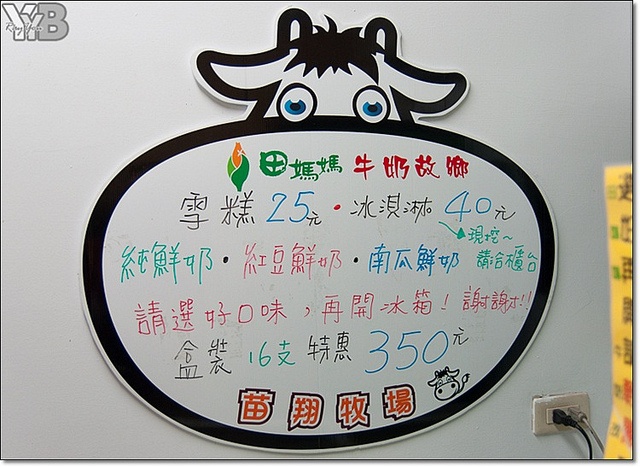 YYB
田媽媽 牛奶故鄉
雪糕25元・冰淇淋 40元
現挖~
請洽櫃台
純鮮奶・紅豆鮮奶・南瓜鮮奶
請選好口味，再開冰箱！謝謝!!
盒裝 16支 特惠 350元
苗翔牧場